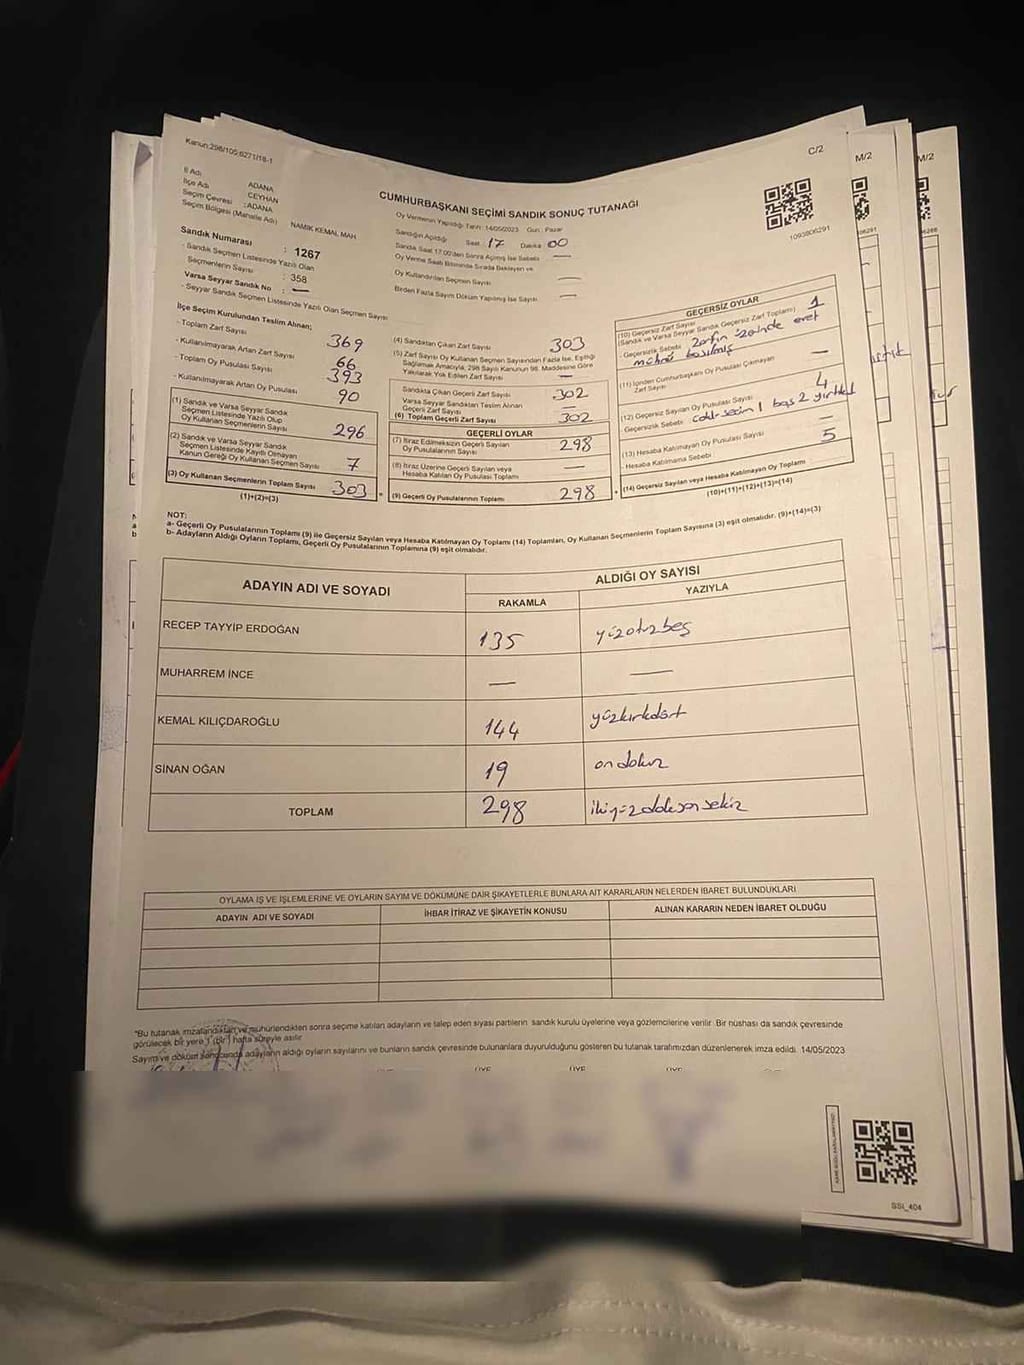 Kanun:298/105;6271/18-1
C/2
M/2
M/2
İl Adı : ADANA
İlçe Adı : CEYHAN
Seçim Çevresi : ADANA
Seçim Bölgesi (Mahalle Adı) NAMIK KEMAL MAH
CUMHURBAŞKANI SEÇİMİ SANDIK SONUÇ TUTANAĞI
1093806291
Sandık Numarası : 1267
- Sandık Seçmen Listesinde Yazılı Olan
Seçmenlerin Sayısı : 358
Varsa Seyyar Sandık No : —
- Seyyar Sandık Seçmen Listesinde Yazılı Olan Seçmen Sayısı
Oy Vermenin Yapıldığı Tarih: 14/05/2023 Gün: Pazar
Sandığın Açıldığı Saat 17 Dakika 00
Sandık Saat 17:00'den Sonra Açılmış İse Sebebi —
Oy Verme Saati Bitiminde Sırada Bekleyen ve
Oy Kullandırılan Seçmen Sayısı —
Birden Fazla Sayım Döküm Yapılmış İse Sayısı —
İlçe Seçim Kurulundan Teslim Alınan;
- Toplam Zarf Sayısı 369
- Kullanılmayarak Artan Zarf Sayısı 66
- Toplam Oy Pusulası Sayısı 393
- Kullanılmayarak Artan Oy Pusulası 90
(1) Sandık ve Varsa Seyyar Sandık
Seçmen Listesinde Yazılı Olup
Oy Kullanan Seçmenlerin Sayısı 296
(2) Sandık ve Varsa Seyyar Sandık
Seçmen Listesinde Kayıtlı Olmayan
Kanun Gereği Oy Kullanan Seçmen Sayısı 7
(3) Oy Kullanan Seçmenlerin Toplam Sayısı 303
(1)+(2)=(3)
(4) Sandıktan Çıkan Zarf Sayısı 303
(5) Zarf Sayısı Oy Kullanan Seçmen Sayısından Fazla İse, Eşitliği
Sağlamak Amacıyla, 298 Sayılı Kanunun 98. Maddesine Göre
Yakılarak Yok Edilen Zarf Sayısı —
Sandıkta Çıkan Geçerli Zarf Sayısı 302
Varsa Seyyar Sandıktan Teslim Alınan
Geçerli Zarf Sayısı —
(6) Toplam Geçerli Zarf Sayısı 302
GEÇERLİ OYLAR
(7) İtiraz Edilmeksizin Geçerli Sayılan
Oy Pusulalarının Sayısı 298
(8) İtiraz Üzerine Geçerli Sayılan veya
Hesaba Katılan Oy Pusulası Toplamı —
(9) Geçerli Oy Pusulalarının Toplamı 298
GEÇERSİZ OYLAR
(10) Geçersiz Zarf Sayısı
(Sandık ve Varsa Seyyar Sandık Geçersiz Zarf Toplamı) 1
- Geçersizlik Sebebi Zarfın üzerinde evet
mührü basılmış
(11) İçinden Cumhurbaşkanı Oy Pusulası Çıkmayan
Zarf Sayısı —
(12) Geçersiz Sayılan Oy Pusulası Sayısı 4
- Geçersizlik Sebebi 1 boş 2 yırtık
(13) Hesaba Katılmayan Oy Pusulası Sayısı —
- Hesaba Katılmama Sebebi
(14) Geçersiz Sayılan veya Hesaba Katılmayan Oy Toplamı 5
(10)+(11)+(12)+(13)=(14)
NOT:
a- Geçerli Oy Pusulalarının Toplamı (9) ile Geçersiz Sayılan veya Hesaba Katılmayan Oy Toplamı (14) Toplamları, Oy Kullanan Seçmenlerin Toplam Sayısına (3) eşit olmalıdır. (9)+(14)=(3)
b- Adayların Aldığı Oyların Toplamı, Geçerli Oy Pusulalarının Toplamına (9) eşit olmalıdır.
ADAYIN ADI VE SOYADI ALDIĞI OY SAYISI
RAKAMLA YAZIYLA
RECEP TAYYİP ERDOĞAN 135 yüzotuzbeş
MUHARREM İNCE — —
KEMAL KILIÇDAROĞLU 144 yüzkırkdört
SİNAN OĞAN 19 on dokuz
TOPLAM 298 ikiyüzdoksansekiz
OYLAMA İŞ VE İŞLEMLERİNE VE OYLARIN SAYIM VE DÖKÜMÜNE DAİR ŞİKAYETLERLE BUNLARA AİT KARARLARIN NELERDEN İBARET BULUNDUKLARI
ADAYIN ADI VE SOYADI İHBAR İTİRAZ VE ŞİKAYETİN KONUSU ALINAN KARARIN NEDEN İBARET OLDUĞU
"Bu tutanak imzalandıktan ve mühürlendikten sonra seçime katılan adayların ve talep eden siyasi partilerin sandık kurulu üyelerine veya gözlemcilerine verilir. Bir nüshası da sandık çevresinde
görülecek bir yere 1 (bir) hafta süreyle asılır.
Sayım ve döküm sonucunda adayların aldığı oyların sayılarını ve bunların sandık çevresinde bulunanlara duyurulduğunu gösteren bu tutanak tarafımızdan düzenlenerek imza edildi. 14/05/2023
ÜYE ÜYE ÜYE
SSI_404